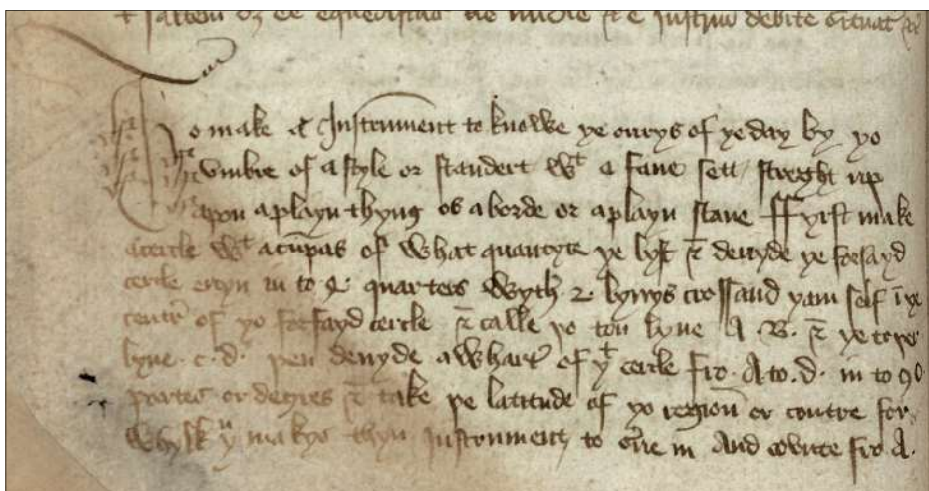 To make a Instrument to knowe ye ourys of ye day by yo
vmbre of a style or standert wt a fane sett streght up
apon a playn thyng os a borde or a playn stane ffyrst make
a cercle wt a cūpas of what quantyte ye lyst & deuyde ye forsayd
cercle euyn in to 4 quarters wyth 2 lynys crossand yam self ī ye
centre of yo forsayd cercle & calle yo ton lyne A. B. & ye toyr
lyne . c . d . yen deuyde a whartr of yt cercle fro . A to . d . in to 90
partes or degres & take ye latitude of yo regioun or contre for
whylk yu makys thyn Instrument to serue in And counte fro A .